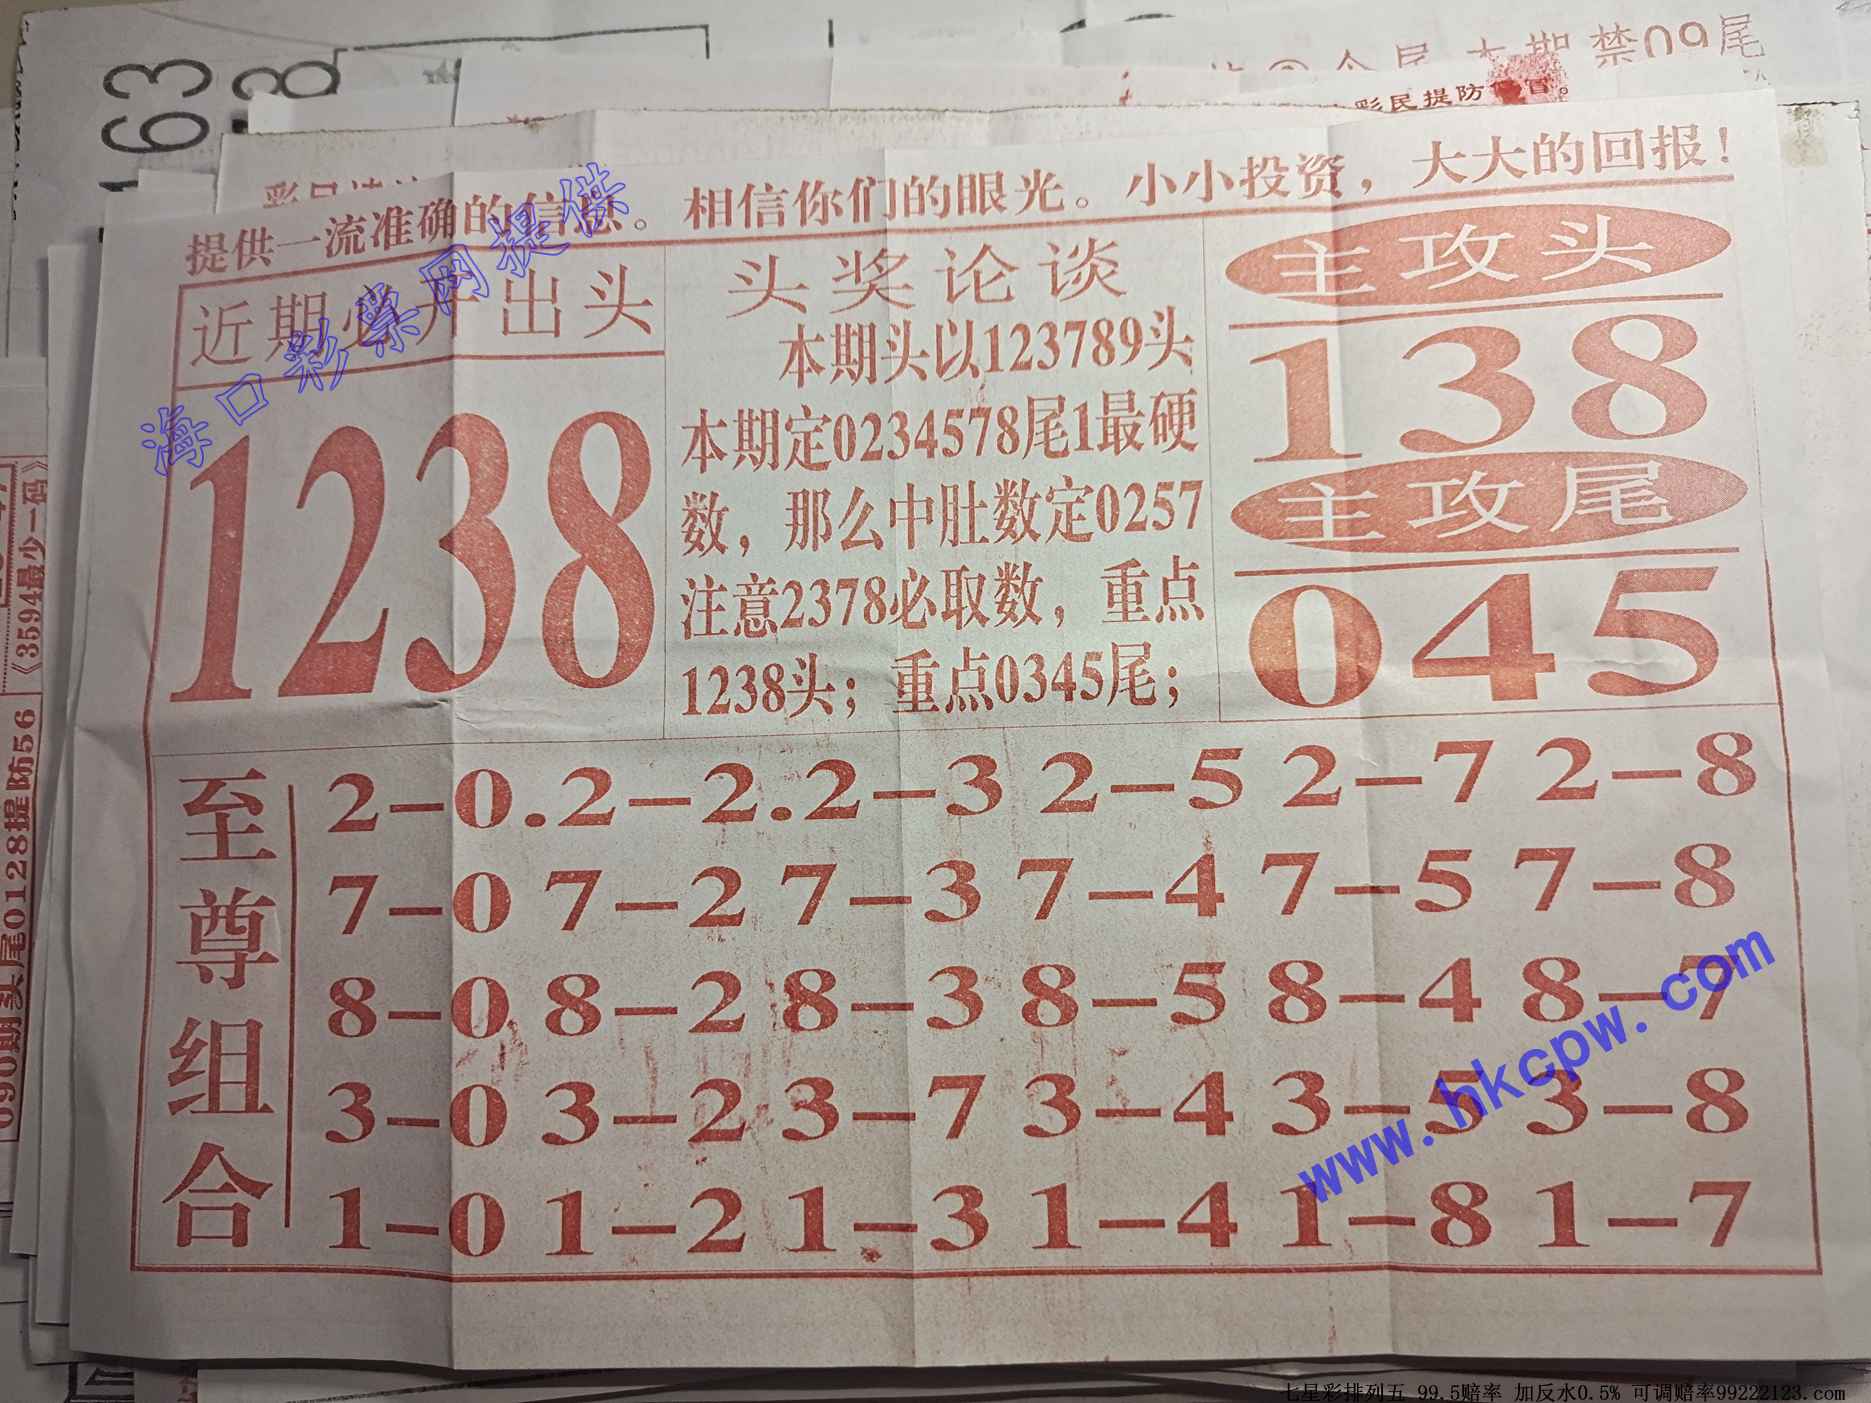 163
本期禁09尾
彩民提防
提供一流准确的信息。相信你们的眼光。小小投资，大大的回报！
海口彩票网提供
近期必开出头
1238
头奖论谈
本期头以123789头
本期定0234578尾1最硬
数，那么中肚数定0257
注意2378必取数，重点
1238头；重点0345尾；
主攻头
138
主攻尾
045
至尊组合
2-0.2-2.2-3 2-5 2-7 2-8
7-0 7-2 7-3 7-4 7-5 7-8
8-0 8-2 8-3 8-5 8-4 8-7
3-0 3-2 3-7 3-4 3-5 3-8
1-0 1-2 1-3 1-4 1-8 1-7
《3594最少一码》
090期头尾0128提防56
www.hkcpw.com
七星彩排列五 99.5赔率 加反水0.5% 可调赔率99222123.com